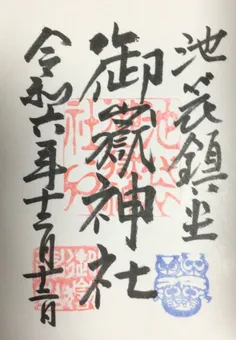 池袋鎮坐
御嶽神社
令和六年十二月十二日